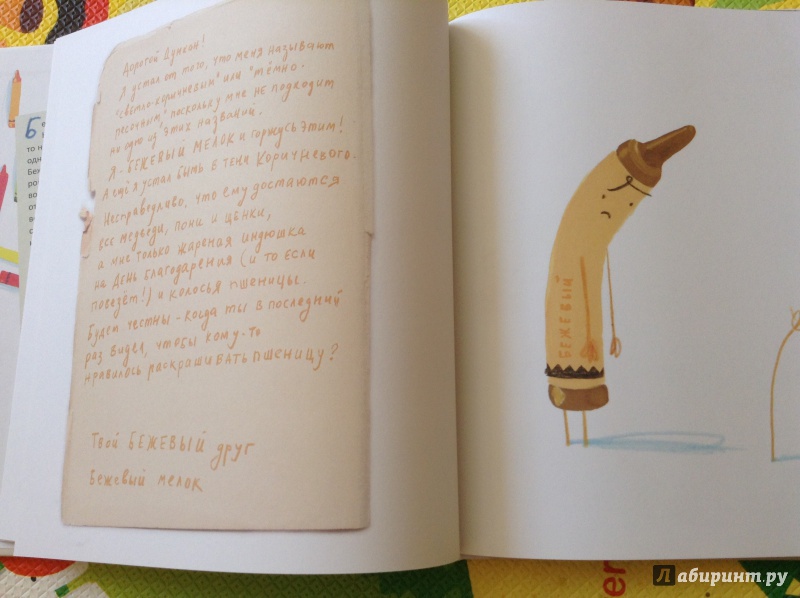 Дорогой Дункан!
Я устал от того, что меня называют
"светло-коричневым" или "тёмно-
песочным", поскольку мне не подходит
ни одно из этих названий.
Я - БЕЖЕВЫЙ МЕЛОК и горжусь этим!
А ещё я устал быть в тени Коричневого.
Несправедливо, что ему достаются
все медведи, пони и щенки,
а мне только жареная индюшка
на День благодарения (и то если
повезёт!) и колосья пшеницы.
Будем честны - когда ты в последний
раз видел, чтобы кому-то
нравилось раскрашивать пшеницу?
Твой БЕЖЕВЫЙ друг
Бежевый мелок
БЕЖЕВЫЙ
Лабиринт.ру